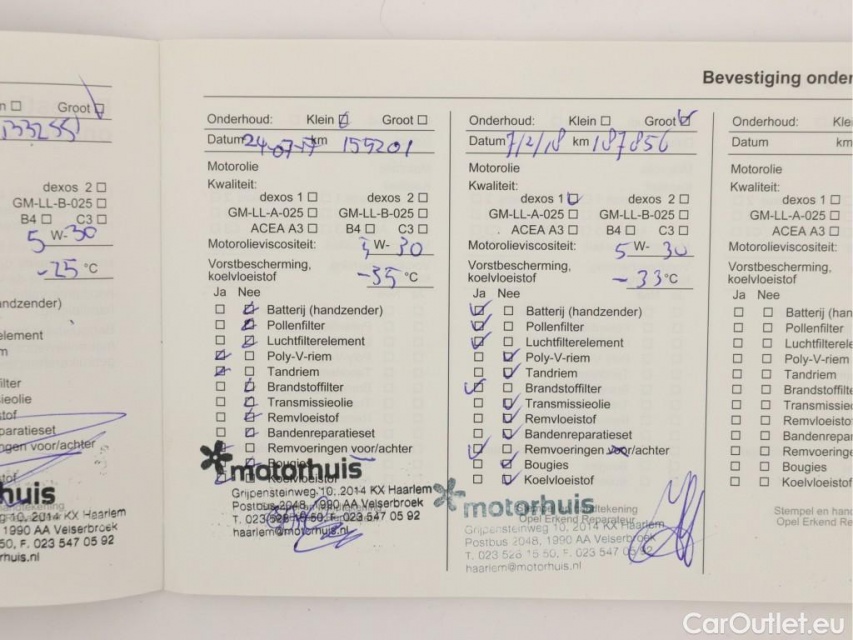 Bevestiging onder
n Groot
133255
dexos 2
GM-LL-B-025
B4 C3
5 W-30
-25 °C
andzender)
element
m
ilter
sieolie
stof
paratieset
ngen voor/achter
tof
huis
g 10, 2014 KX Haarlem
1990 AA Velserbroek
50, F. 023 547 05 92
rhuis.nl
Onderhoud: Klein Groot
Datum 24-07-17 km 159201
Motorolie
Kwaliteit:
dexos 1 dexos 2
GM-LL-A-025 GM-LL-B-025
ACEA A3 B4 C3
Motorolieviscositeit: 5 W- 30
Vorstbescherming,
koelvloeistof -35 °C
Ja Nee
Batterij (handzender)
Pollenfilter
Luchtfilterelement
Poly-V-riem
Tandriem
Brandstoffilter
Transmissieolie
Remvloeistof
Bandenreparatieset
Remvoeringen voor/achter
Bougies
Koelvloeistof
motorhuis
Grijpensteinweg 10, 2014 KX Haarlem
Postbus 2048, 1990 AA Velserbroek
T. 023 528 15 50, F. 023 547 05 92
haarlem@motorhuis.nl
Onderhoud: Klein Groot
Datum 7/2/18 km 187856
Motorolie
Kwaliteit:
dexos 1 dexos 2
GM-LL-A-025 GM-LL-B-025
ACEA A3 B4 C3
Motorolieviscositeit: 5 W- 30
Vorstbescherming,
koelvloeistof -33 °C
Ja Nee
Batterij (handzender)
Pollenfilter
Luchtfilterelement
Poly-V-riem
Tandriem
Brandstoffilter
Transmissieolie
Remvloeistof
Bandenreparatieset
Remvoeringen voor/achter
Bougies
Koelvloeistof
motorhuis
Opel Erkend Reparateur
Grijpensteinweg 10, 2014 KX Haarlem
Postbus 2048, 1990 AA Velserbroek
T. 023 528 15 50, F. 023 547 05 92
haarlem@motorhuis.nl
Onderhoud: Kle
Datum km
Motorolie
Kwaliteit:
dexos 1
GM-LL-A-025
ACEA A3
Motorolieviscositeit:
Vorstbescherming,
koelvloeistof
Ja Nee
Batterij (han
Pollenfilter
Luchtfilterele
Poly-V-riem
Tandriem
Brandstoffilte
Transmissie
Remvloeistof
Bandenrepar
Remvoeringen
Bougies
Koelvloeistof
Stempel en hand
Opel Erkend Re
CarOutlet.eu